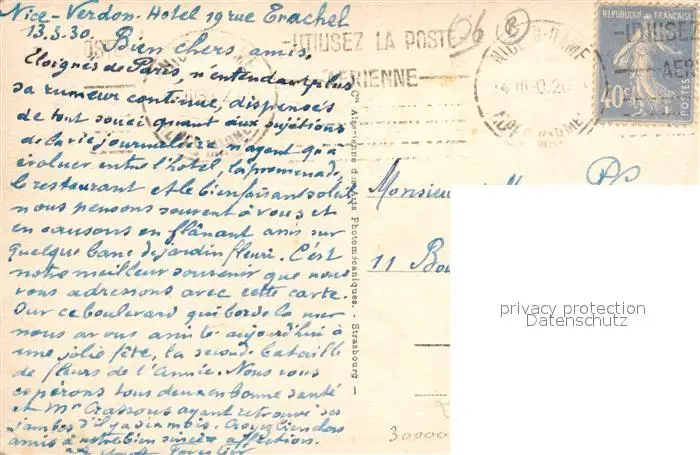 Nice - Verdon-Hotel 19 rue Erachel
13.3.30.
Bien chers amis,
Eloignés de Paris, n'entendant plus
sa rumeur continue, dispensés
de tout souci quant aux sujétions
de la vie journalière n'ayant qu'à
évoluer entre l'hôtel, la promenade,
le restaurant et le bienfaisant soleil
nous pensons souvent à vous et
en causons en flânant assis sur
quelque banc de jardin fleuri. C'est
notre meilleur souvenir que nous
vous adressons avec cette carte.
Sur ce boulevard qui borde la mer
nous avons assisté aujourd'hui à
une jolie fête, la seconde bataille
de fleurs de l'Année. Nous vous
espérons tous deux en bonne santé
et Mr Crassous ayant retrouvé ses
jambes d'il y a six mois. Croyez bien chers
amis à notre bien sincère affection.
Forestier
-UTILISEZ LA POSTE
AERIENNE-
NICE
ALPES MARITIMES
REPUBLIQUE FRANÇAISE
40c
POSTES
-UTILISEZ
AER
Cie Alsacienne des Arts Photomécaniques. - Strasbourg
Monsieur
11 Bou
privacy protection
Datenschutz
30000